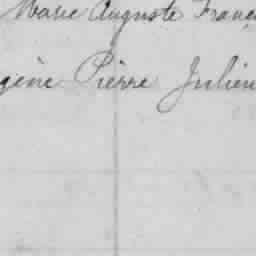 Marie Auguste França
gène Pierre Julien